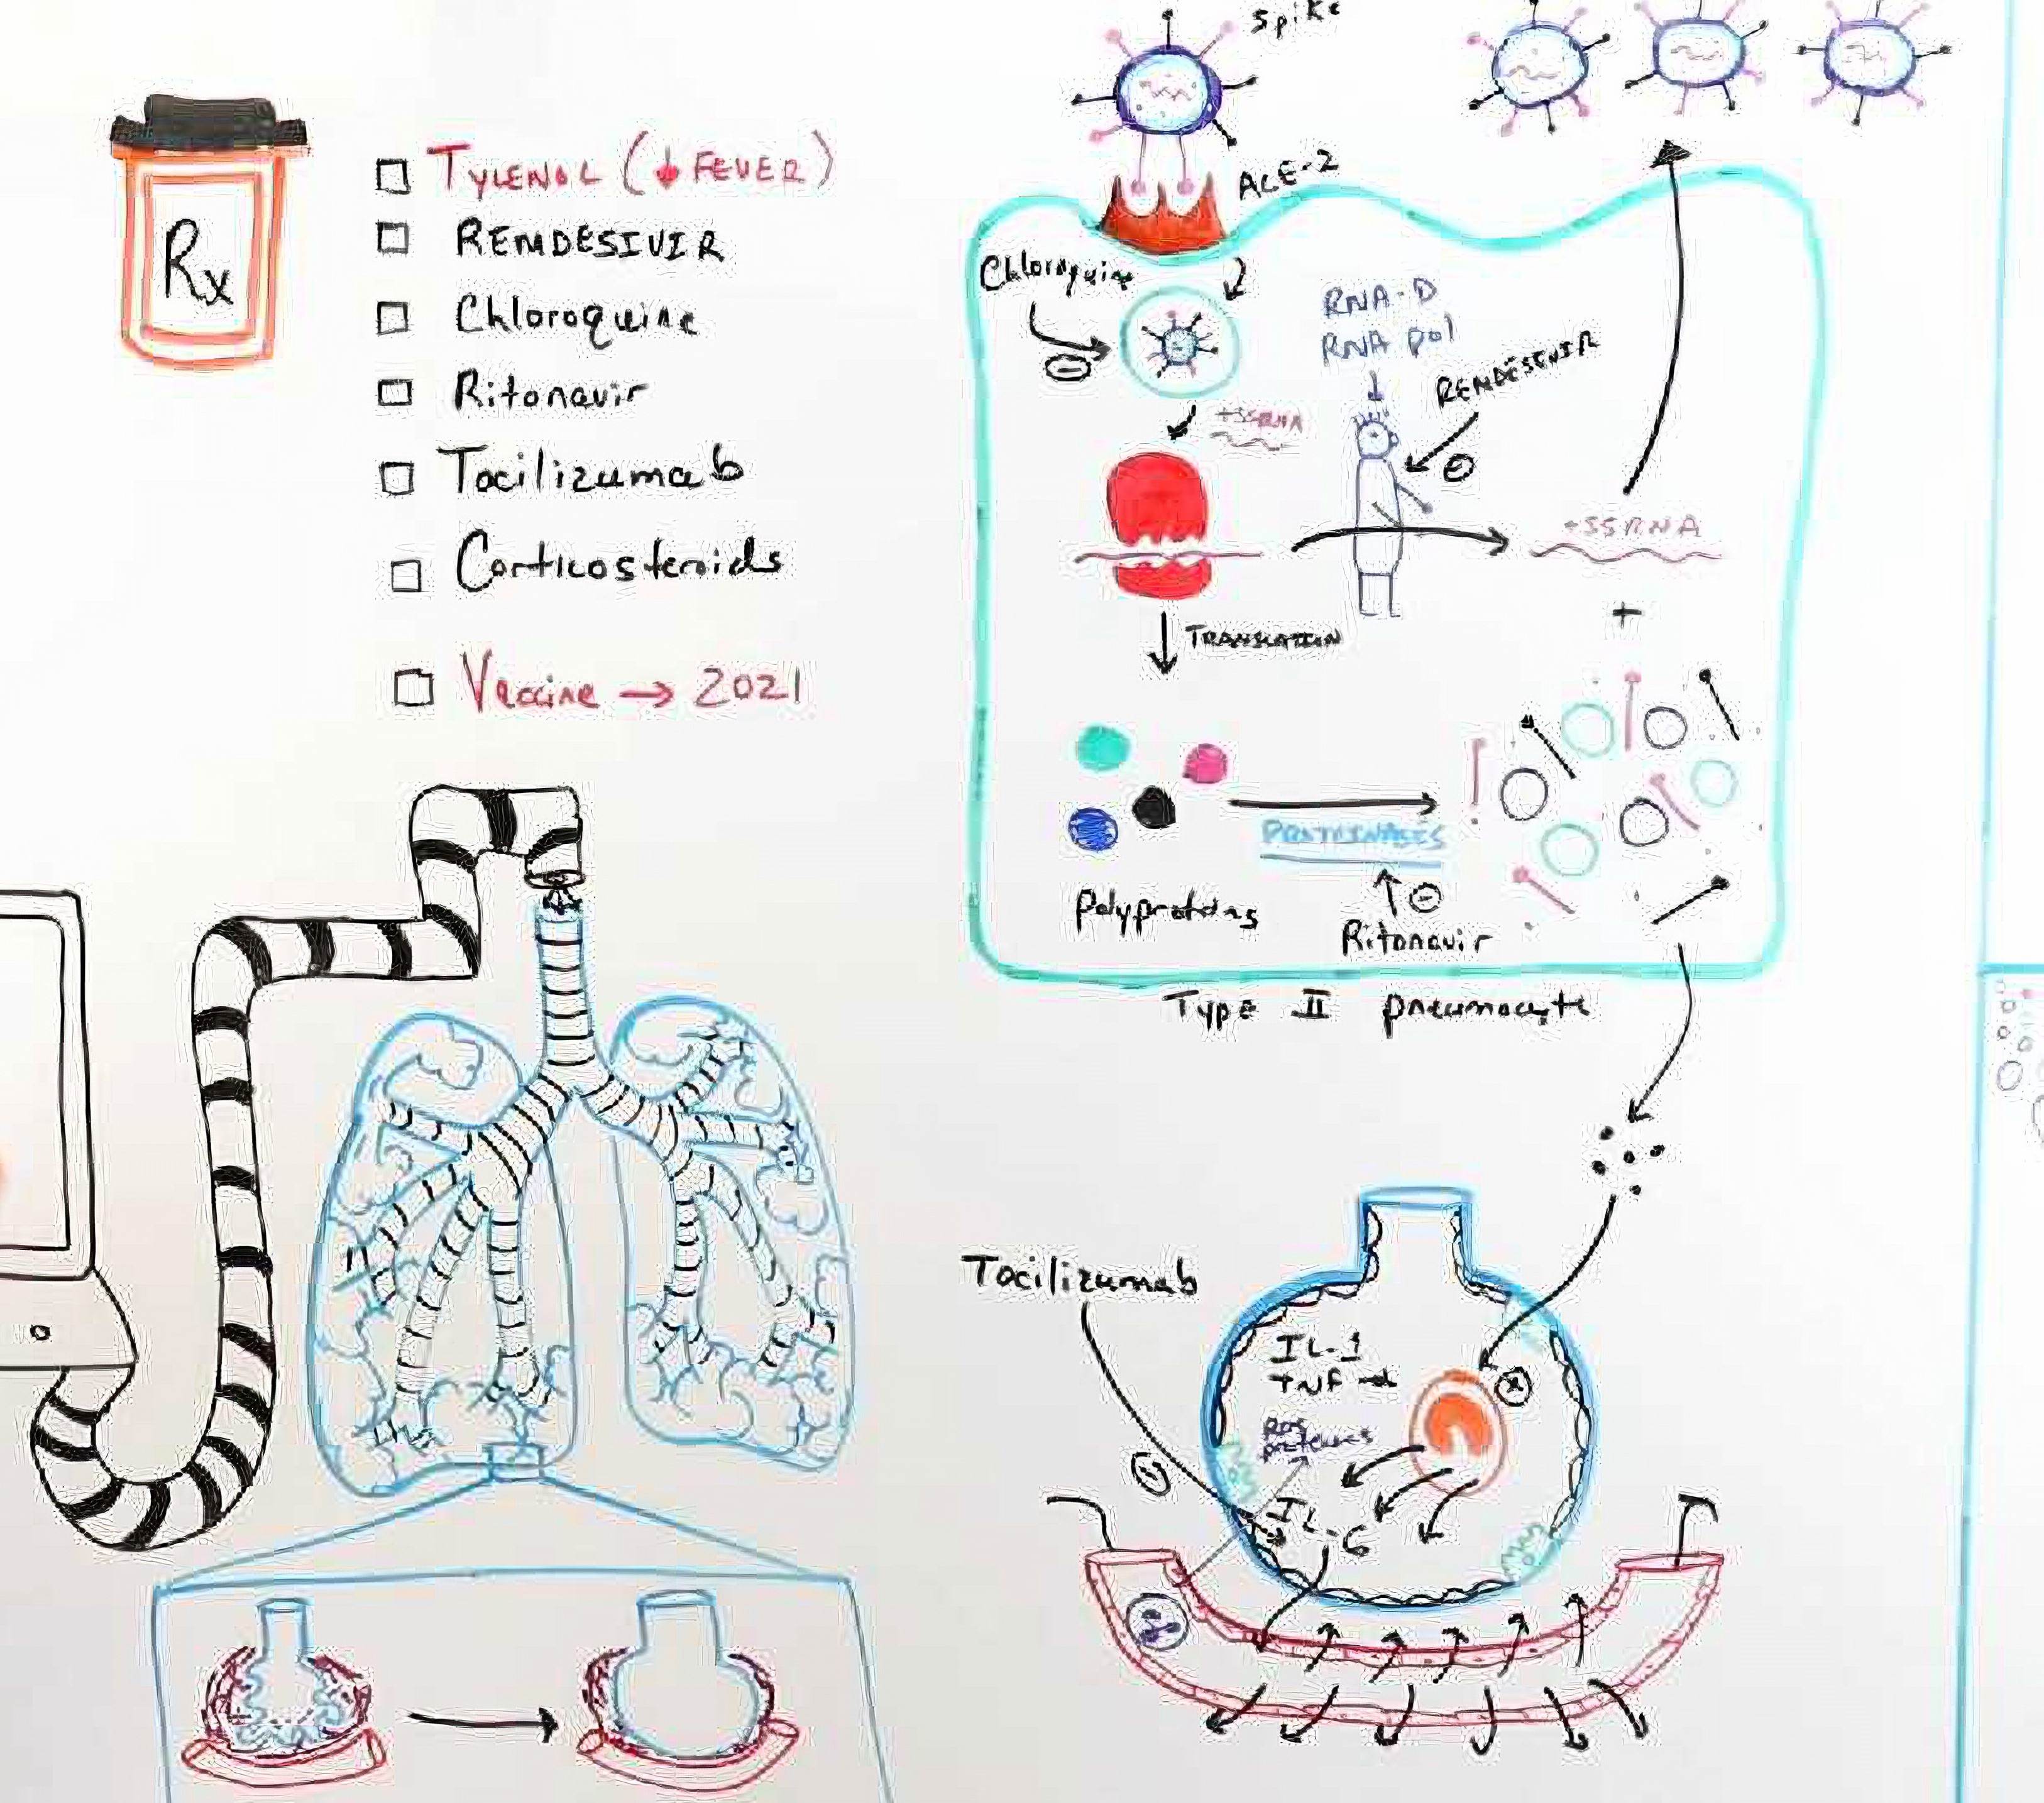 Rx
TYLENOL (↓ FEVER)
REMDESIVIR
Chloroquine
Ritonavir
Tocilizumab
Corticosteroids
Vaccine → 2021
Spike
ACE-2
Chloroquine
RNA-D
RNA pol
REMDESIVIR
+SSRNA
+SSRNA
+
TRANSLATION
PROTEINASES
Polyproteins
Ritonavir
Type II pneumocyte
Tocilizumab
IL-1
TNF-α
ROS
proteases
IL-6